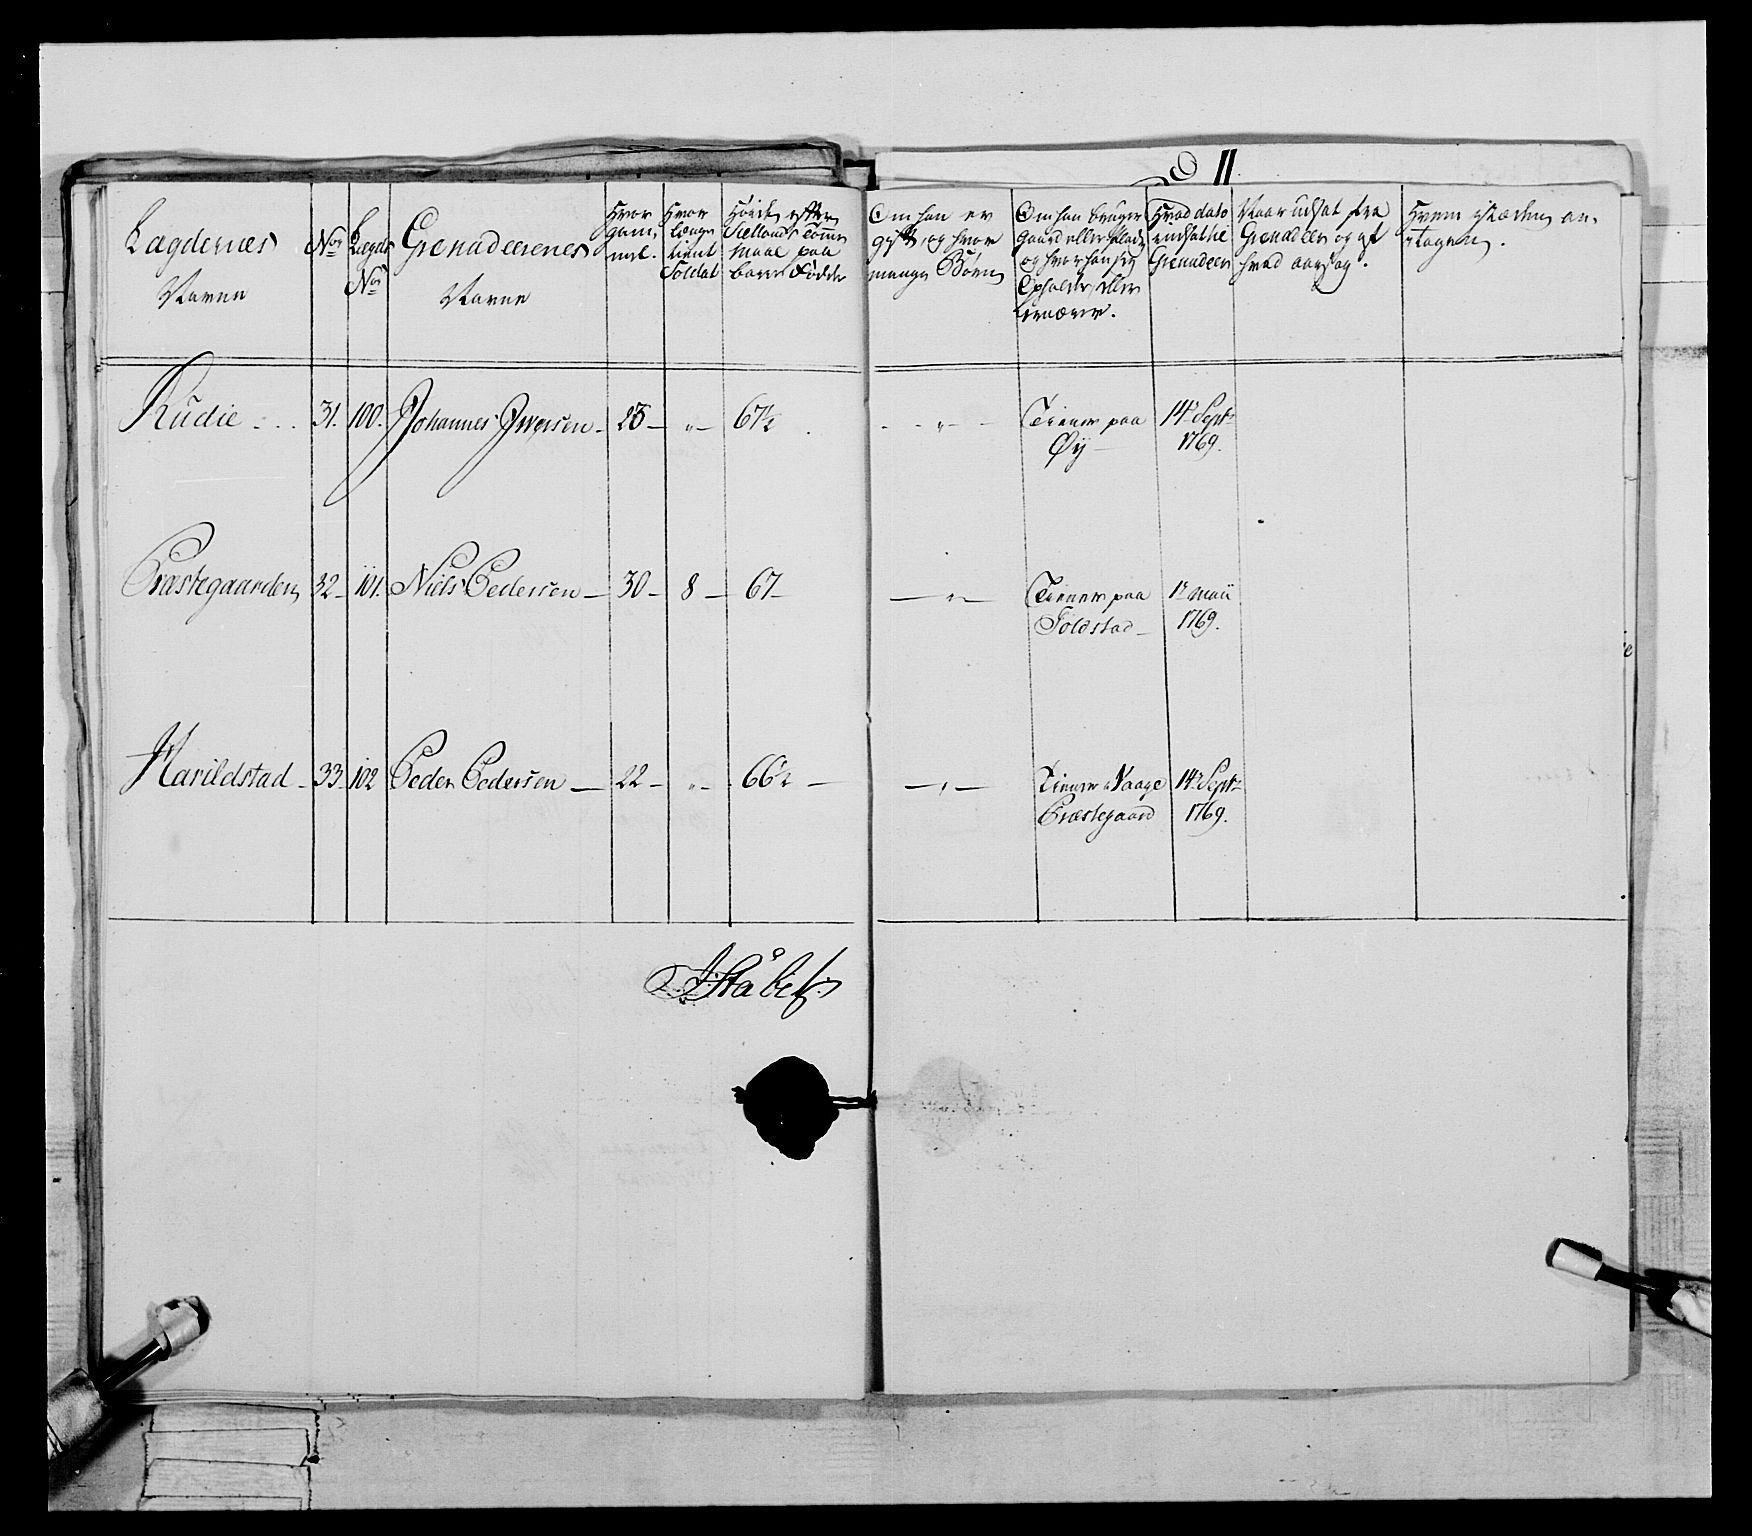 II
Lægdernes Navne
Nos
Lægds Nos
Grenadeerenes Navne
Hvor gam, mel.
Hvor længe tient Soldat
Høiden efter Siellands Tomme Maal paa barre Fødder
Om han er gift, og hvor mange Børn
Om han bruger Gaard eller Plads og hvor han sig Opholder eller
Hvad dato indsat til Grenadeer
Naar udsat fra Grenadeer og af hvad aarsag.
Hvem i Stæden an, tagen.
Rudie 31. 100. Johannes Iversen 23 „ 67½ „ Tiener paa Øÿ 14de Septr 1769.
Præstegaarden 32 101. Niels Pedersen 30 8 67 „ Tiener paa Toldstad 1te maii 1769.
Harildstad 33 102 Peder Pedersen 22 „ 66½ „ Tiener i Vaage Præstegaard 14de Septr 1769.